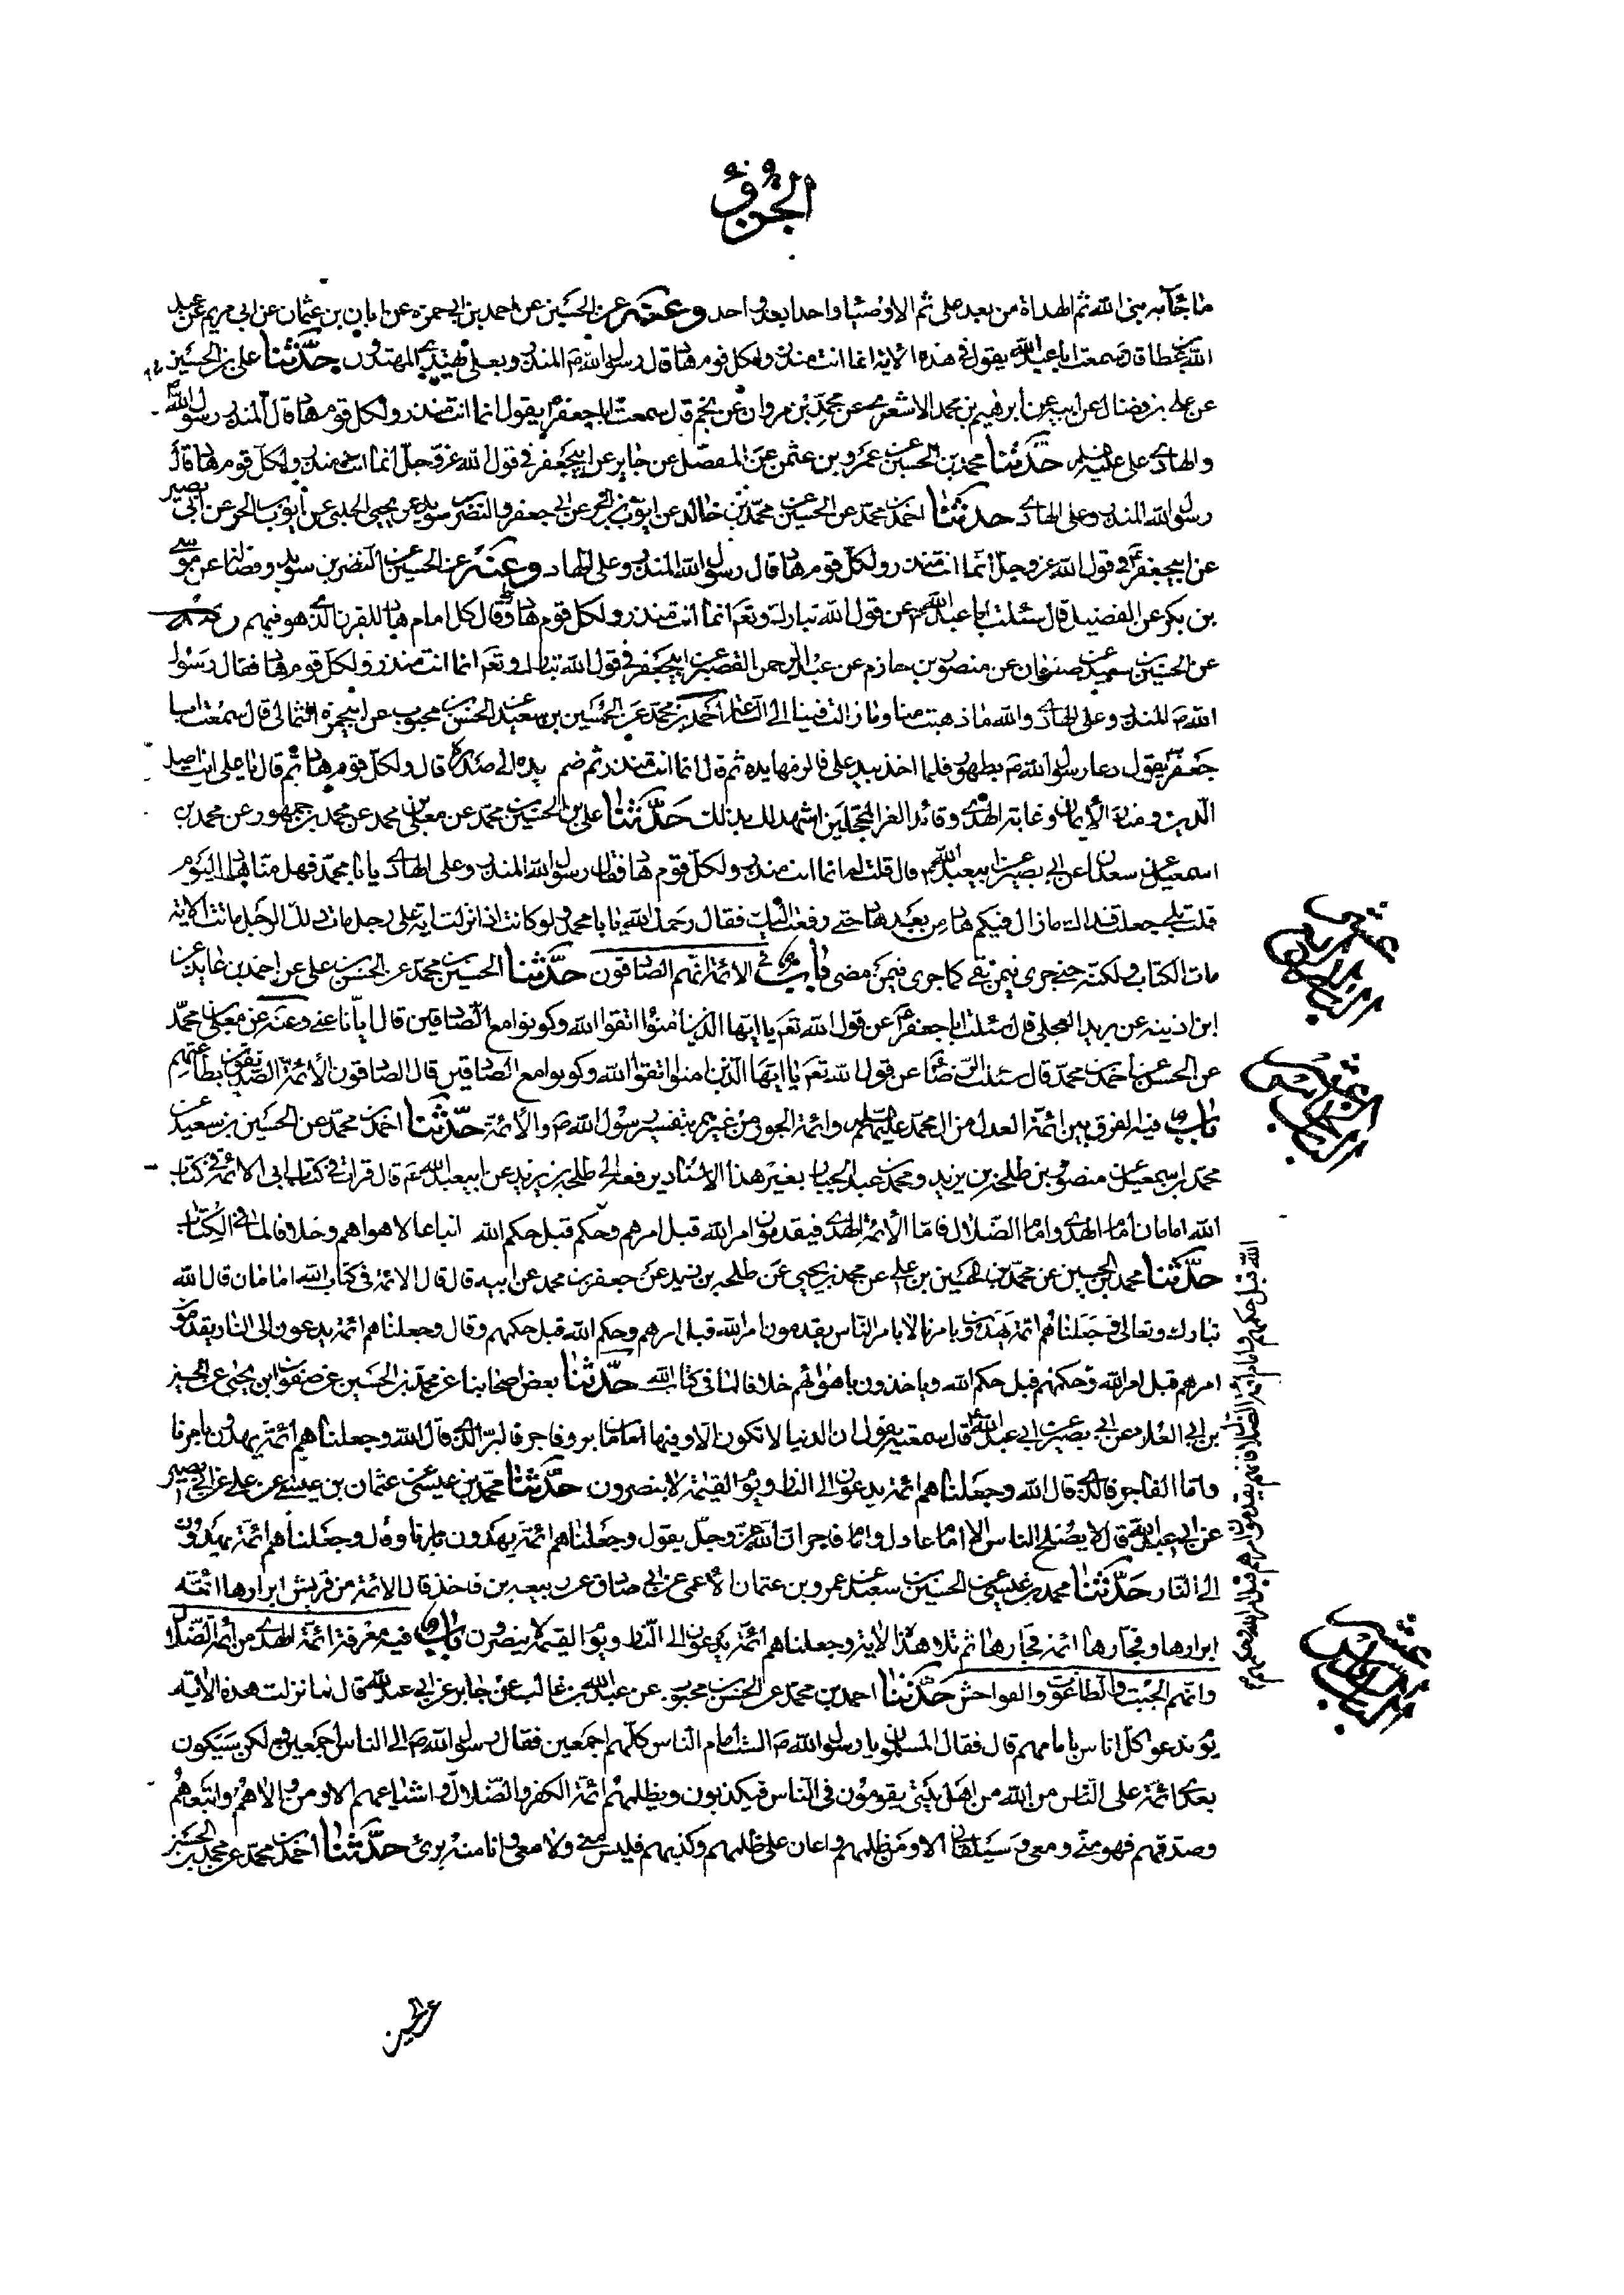 الجزؤ
ما جآء به نبي الله ثم الهداة من بعد علي ثم الاوصيا واحدا بعد واحد وعنه عن الحسين عن احمد بن ابي حمزه عن ابان بن عثمان عن ابي مريم عن عبد
الله بن عطا قال سمعت ابا عبد الله يقول في هذه الاية انما انت منذر ولكل قوم هاد قال رسول الله ص المنذر وبعلي يهتدي المهتدون حدثنا علي بن الحسين
عن علي بن فضال عن ابيه عن ابرهيم بن محمد الاشعري عن محمد بن مروان عن نجم قال سمعت ابا جعفر يقول انما انت منذر ولكل قوم هاد قال المنذر رسول الله
والهادي علي عليه السلم حدثنا محمد بن الحسين عن عمرو بن عثمن عن المفصل عن جابر عن ابيجعفر في قول الله عز وجل انما انت منذر ولكل قوم هاد قال
رسول الله المنذر وعلي الهادي حدثنا احمد بن محمد عن الحسين عن محمد بن خالد عن ايوب بن الحر عن ابي جعفر والنضر بن سويد عن يحيى الحلبي عن ايوب الحر عن ابي بصير
عن ابيجعفر في قول الله عز وجل انما انت منذر ولكل قوم هاد قال رسول الله المنذر وعلي الهاد وعنه عن الحسين عن النضر بن سويد وفضالة عن موسى
بن بكر عن الفضيل قال سئلت ابا عبد الله عن قول الله تبارك وتع انما انت منذر ولكل قوم هاد قال كل امام هاد للقرن الذي هو فيهم
عن الحسين بن سعيد عن صفوان عن منصور بن حازم عن عبد الرحمن القصير عن ابيجعفر في قول الله تبارك وتع انما انت منذر ولكل قوم هاد فقال رسول
الله ص المنذر وعلي الهادي والله ما ذهبت منا وما زالت فينا الى الساعة احمد بن محمد عن الحسين بن سعيد عن الحسن بن محبوب عن ابيحمزة الثمالي قال سمعت ابا
جعفر يقول دعا رسول الله ص بطهور فلما اخذ بيد علي فالزمها يده ثم قال انما انت منذر ثم ضم يده الى صدره قال ولكل قوم هاد ثم قال يا علي انت اصل
الدين ومنار الايمان وغاية الهدى وقائد الغر المحجلين اشهد لك بذلك حدثنا علي بن الحسين بن محمد عن معلى بن محمد عن محمد بن جمهور عن محمد بن
اسمعيل عن سعدان عن ابي بصير عن ابيعبد الله قال قلت له انما انت منذر ولكل قوم هاد فقال رسول الله المنذر وعلي الهادي يا ابا محمد فهل منا هاد اليوم
قلت بلى جعلت فداك ما زال فيكم هاد من بعد هاد حتى رفعت اليك فقال رحمك الله يا ابا محمد ولو كانت اذا نزلت اية على رجل مات ذلك الرجل ماتت الاية
مات الكتاب ولكنه حي جرى فيمن بقي كما جرى فيمن مضى باب في الائمة انهم الصادقون حدثنا الحسين بن محمد عن الحسن بن علي عن احمد بن عايد عن
ابن اذينه عن بريد العجلي قال سئلت ابا جعفر عن قول الله تع يا ايها الذين امنوا اتقوا الله وكونوا مع الصادقين قال ايانا عنى وعنه عن معلى بن محمد
عن الحسن عن احمد بن محمد قال سئلت الرضا عن قول الله تع يا ايها الذين امنوا اتقوا الله وكونوا مع الصادقين قال الصادقون الائمة الصديقون بطاعتهم
باب فيه الفرق بين ائمة العدل من ال محمد عليهم السلم وائمة الجور من غيرهم بتفسير رسول الله ص والائمة حدثنا احمد بن محمد عن الحسين بن سعيد عن
محمد بن اسمعيل عن منصور بن طلحة بن يزيد ومحمد بن عبد الجبار بغير هذا الاسناد يرفعه الى طلحة بن يزيد عن ابيعبد الله ع قال قرات في كتاب ابي الائمة في كتاب
الله امامان امام الهدى وامام الضلال فاما الائمة الهدى فيقدمون امر الله قبل امرهم وحكم قبل حكم الله اتباعا لاهواهم وخلافا لما في الكتاب
حدثنا محمد بن الحسين عن محمد بن الحسين بن علي عن محمد بن يحيى عن طلحة بن زيد عن جعفر بن محمد عن ابيه قال قال الائمة في كتاب الله امامان قال الله
تبارك وتعالى وجعلناهم ائمة يهدون بامرنا لا بامر الناس يقدمون امر الله قبل امرهم وحكم الله قبل حكمهم وقال وجعلناهم ائمة يدعون الى النار يقدمون
امرهم قبل امر الله وحكمهم قبل حكم الله وياخذون باهوائهم خلافا لما في كتاب الله حدثنا بعض اصحابنا عن محمد بن الحسين عن صفوان بن يحيى عن الحسين
بن ابي العلاء عن ابي بصير عن ابي عبد الله قال سمعته يقول ان الدنيا لا تكون الا وفيها امامان بر وفاجر فالبر الذي قال الله وجعلناهم ائمة يهدون بامرنا
واما الفاجر فالذي قال الله وجعلناهم ائمة يدعون الى النار ويوم القيمة لا ينصرون حدثنا محمد بن عيسى عن عثمان بن عيسى عن علي عن ابي بصير
عن ابي عبد الله قال لا يصلح الناس الا امام عادل وامام فاجر ان الله عز وجل يقول وجعلناهم ائمة يهدون بامرنا وقال وجعلناهم ائمة يهدون
الى النار حدثنا محمد بن عيسى عن الحسين بن سعيد عن عمرو بن عثمان الاعمى عن ابي صادق عن ربيعه بن فاخذ قال الائمة من قريش ابرارها ائمة
ابرارها وفجارها ائمة فجارها ثم تلا هذه الاية وجعلناهم ائمة يدعون الى النار ويوم القيمة لا ينصرون باب فيه معرفة ائمة الهدى من ائمة الضلال
وانهم الجبت والطاغوت والفواحش حدثنا احمد بن محمد عن الحسن بن محبوب عن عبد الله بن غالب عن جابر عن ابي عبد الله قال لما نزلت هذه الاية
يوم ندعوا كل اناس بامامهم قال فقال المسلمون يا رسول الله ص الست امام الناس كلهم اجمعين فقال رسول الله ص الى الناس اجمعين ولكن سيكون
بعدي ائمة على الناس من الله من اهل بيتي يقومون في الناس فيكذبون ويظلمهم ائمة الكفر والضلال واشياعهم الا ومن والاهم واتبعهم
وصدقهم فهو مني ومعي وسيلقاني الا ومن ظلمهم واعان على ظلمهم وكذبهم فليس مني ولا معي وانا منه بريئ حدثنا احمد بن محمد عن محمد بن الحسين